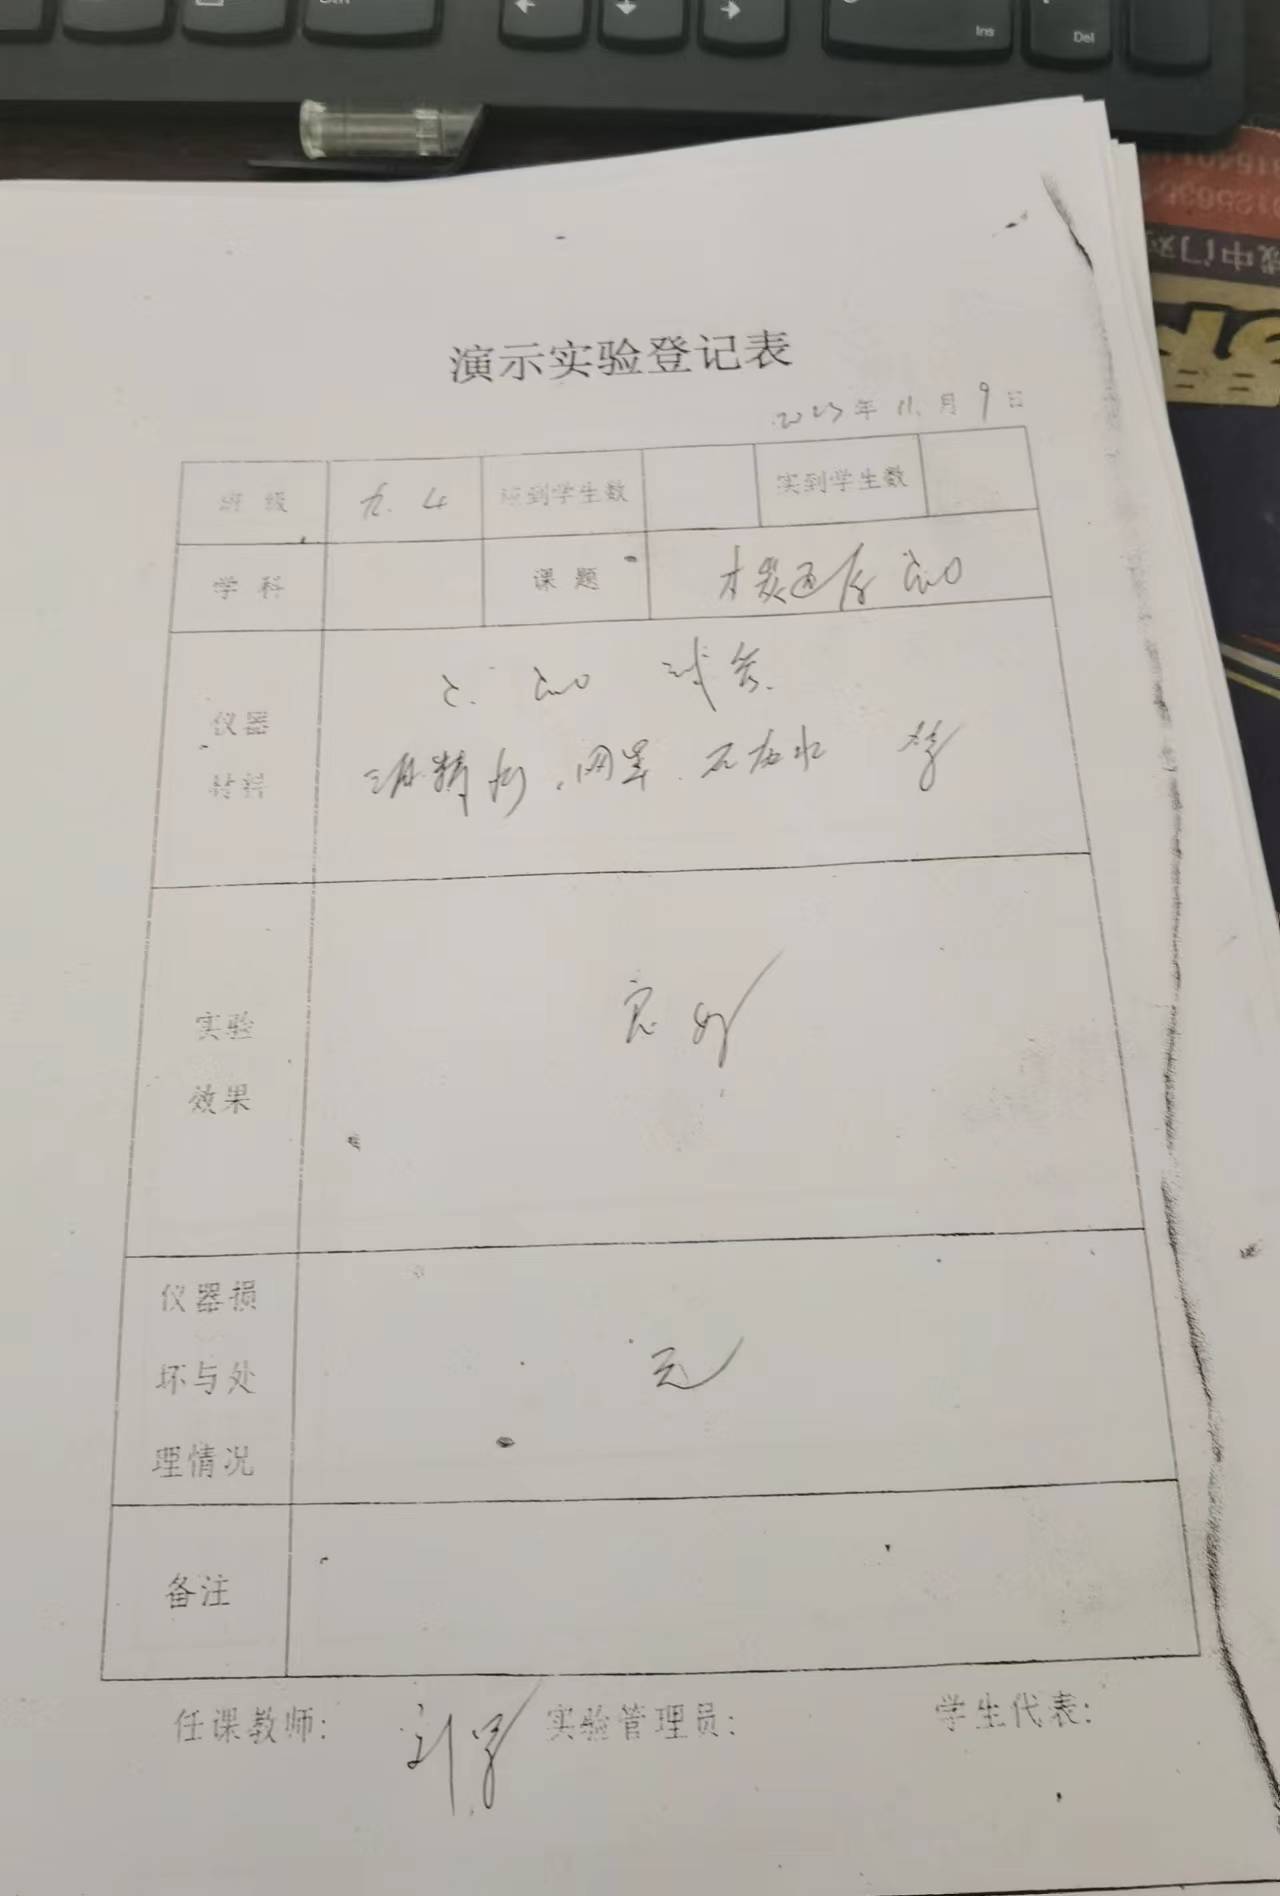 Ins
Del
演示实验登记表
2023年11月9日
班级 九.4 应到学生数 实到学生数
学科 课题 木炭还原CuO
仪器
材料
C. CuO 试管.
酒精灯.网罩.石灰水 等
实验
效果
良好
仪器损
坏与处
理情况
无
备注
任课教师: 实验管理员: 学生代表: